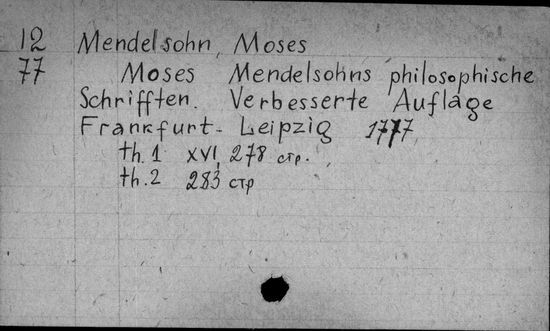 12 Mendelsohn, Moses
77 Moses Mendelsohns philosophische
Schrifften. Verbesserte Auflage
Frankfurt - Leipzig 1777
th. 1 XVI, 278 стр.
th. 2 283 стр